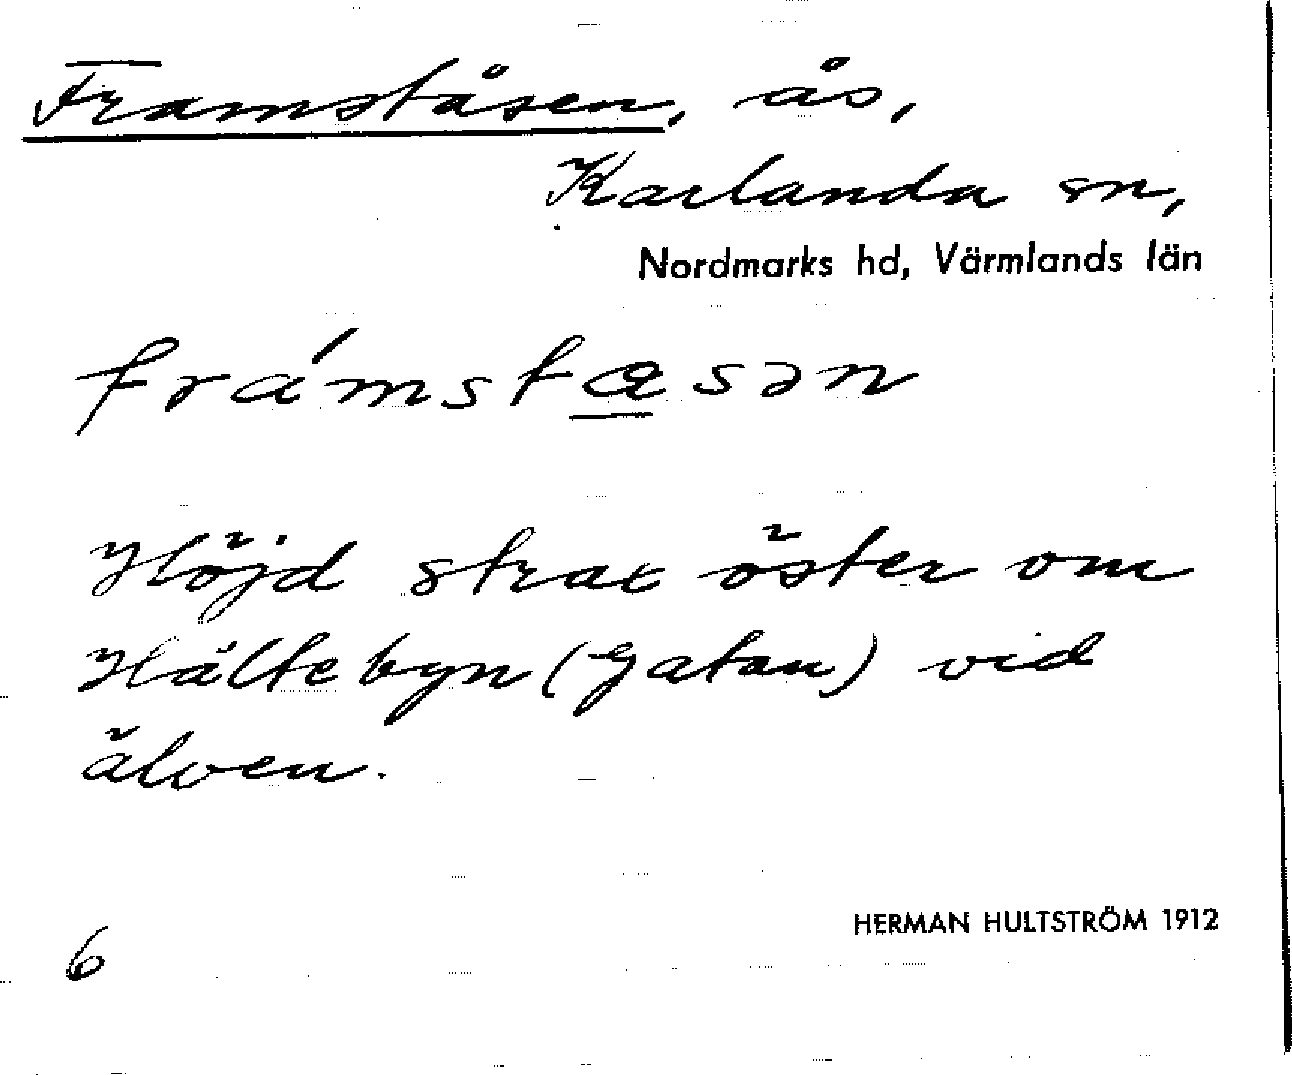 Framståsen, ås,
Karlanda sn,
Nordmarks hd, Värmlands län
frámsta̲sən
Höjd strax öster om
Hältebyn (Gatan) vid
älven.
HERMAN HULTSTRÖM 1912
6